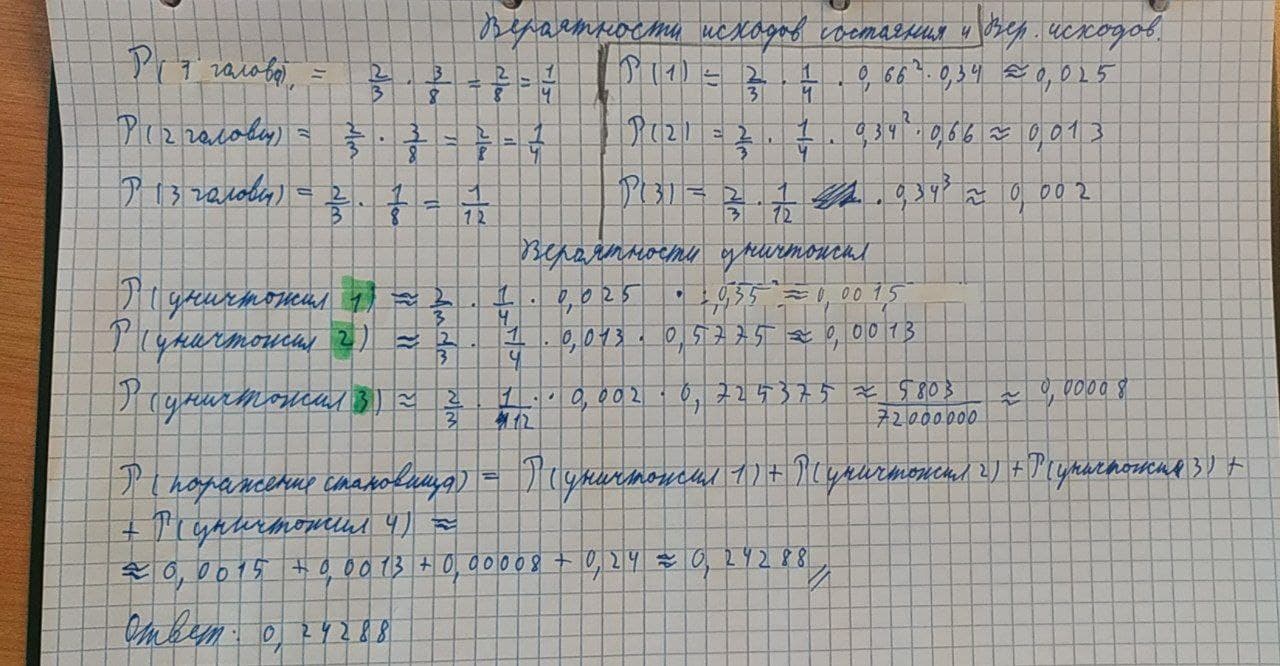 Вероятности исходов состояния и Вер. исходов.
P(1 голова) = 2/3 · 3/8 = 2/8 = 1/4
P(1) = 2/3 · 1/4 · 0,66² · 0,34 ≈ 0,025
P(2 головы) = 2/3 · 3/8 = 2/8 = 1/4
P(2) = 2/3 · 1/4 · 0,34² · 0,66 ≈ 0,013
P(3 головы) = 2/3 · 1/8 = 1/12
P(3) = 2/3 · 1/12 · 0,34³ ≈ 0,002
Вероятности уничтожил
P(уничтожил 1) ≈ 2/3 · 1/4 · 0,025 · 0,35 ≈ 0,0015
P(уничтожил 2) ≈ 2/3 · 1/4 · 0,013 · 0,5775 ≈ 0,0013
P(уничтожил 3) ≈ 2/3 · 1/12 · 0,002 · 0,725375 ≈ 5803/72000000 ≈ 0,00008
P(поражение становища) = P(уничтожил 1) + P(уничтожил 2) + P(уничтожил 3) +
+ P(уничтожил 4) ≈
≈ 0,0015 + 0,0013 + 0,00008 + 0,24 ≈ 0,24288
Ответ: 0,24288